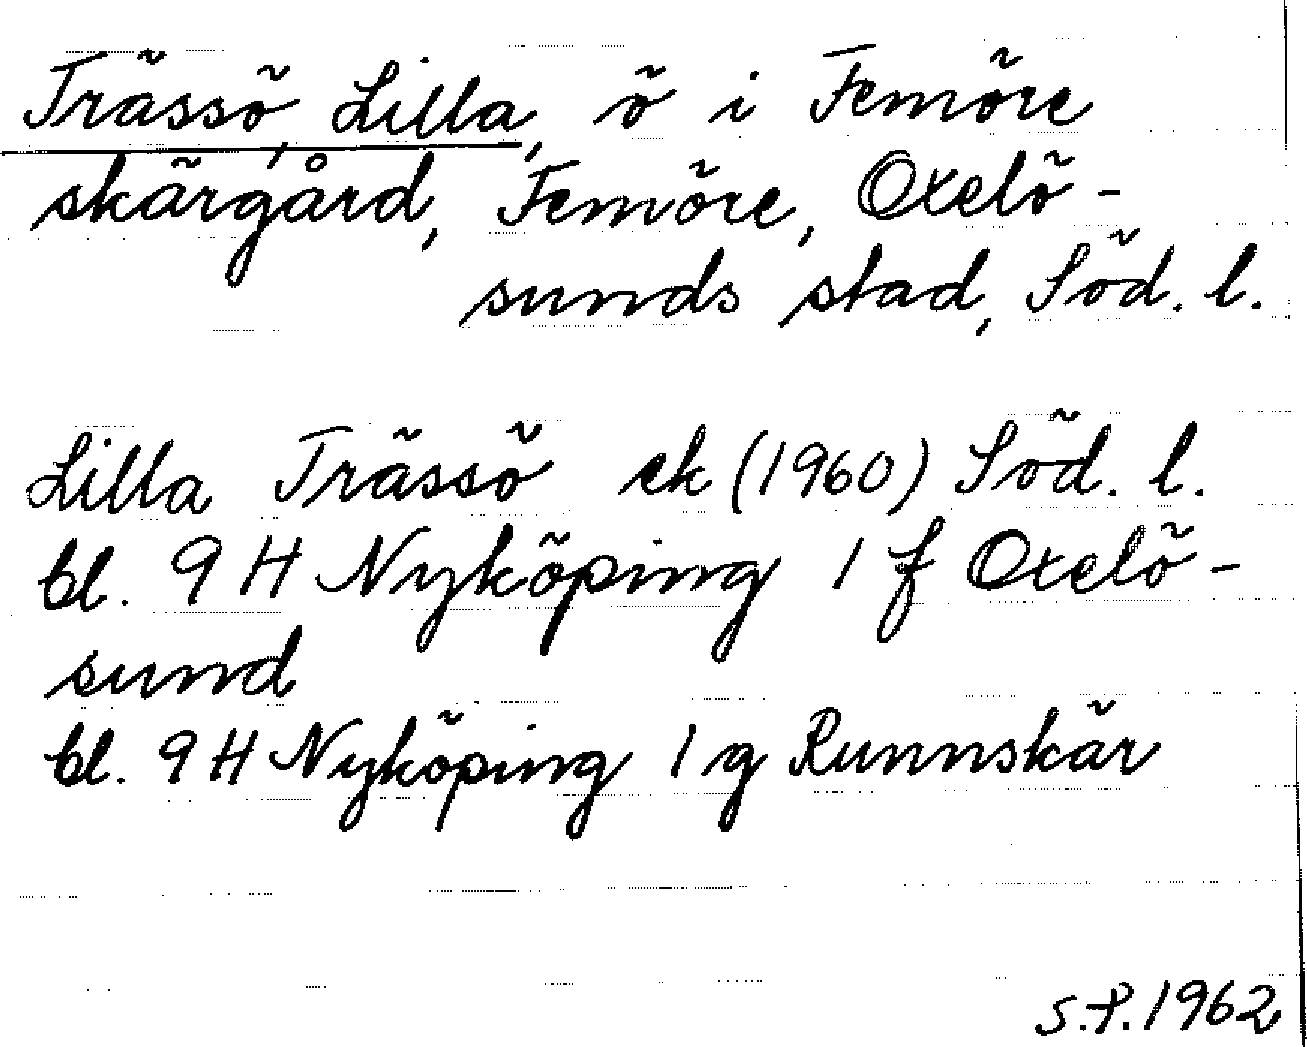 Trässö, Lilla, ö i Femöre
skärgård, Femöre, Oxelö-
sunds stad, Söd. l.
Lilla Trässö ek (1960) Söd. l.
bl. 9 H Nyköping 1 f Oxelö-
sund
bl. 9 H Nyköping 1 g Runnskär
S.P. 1962